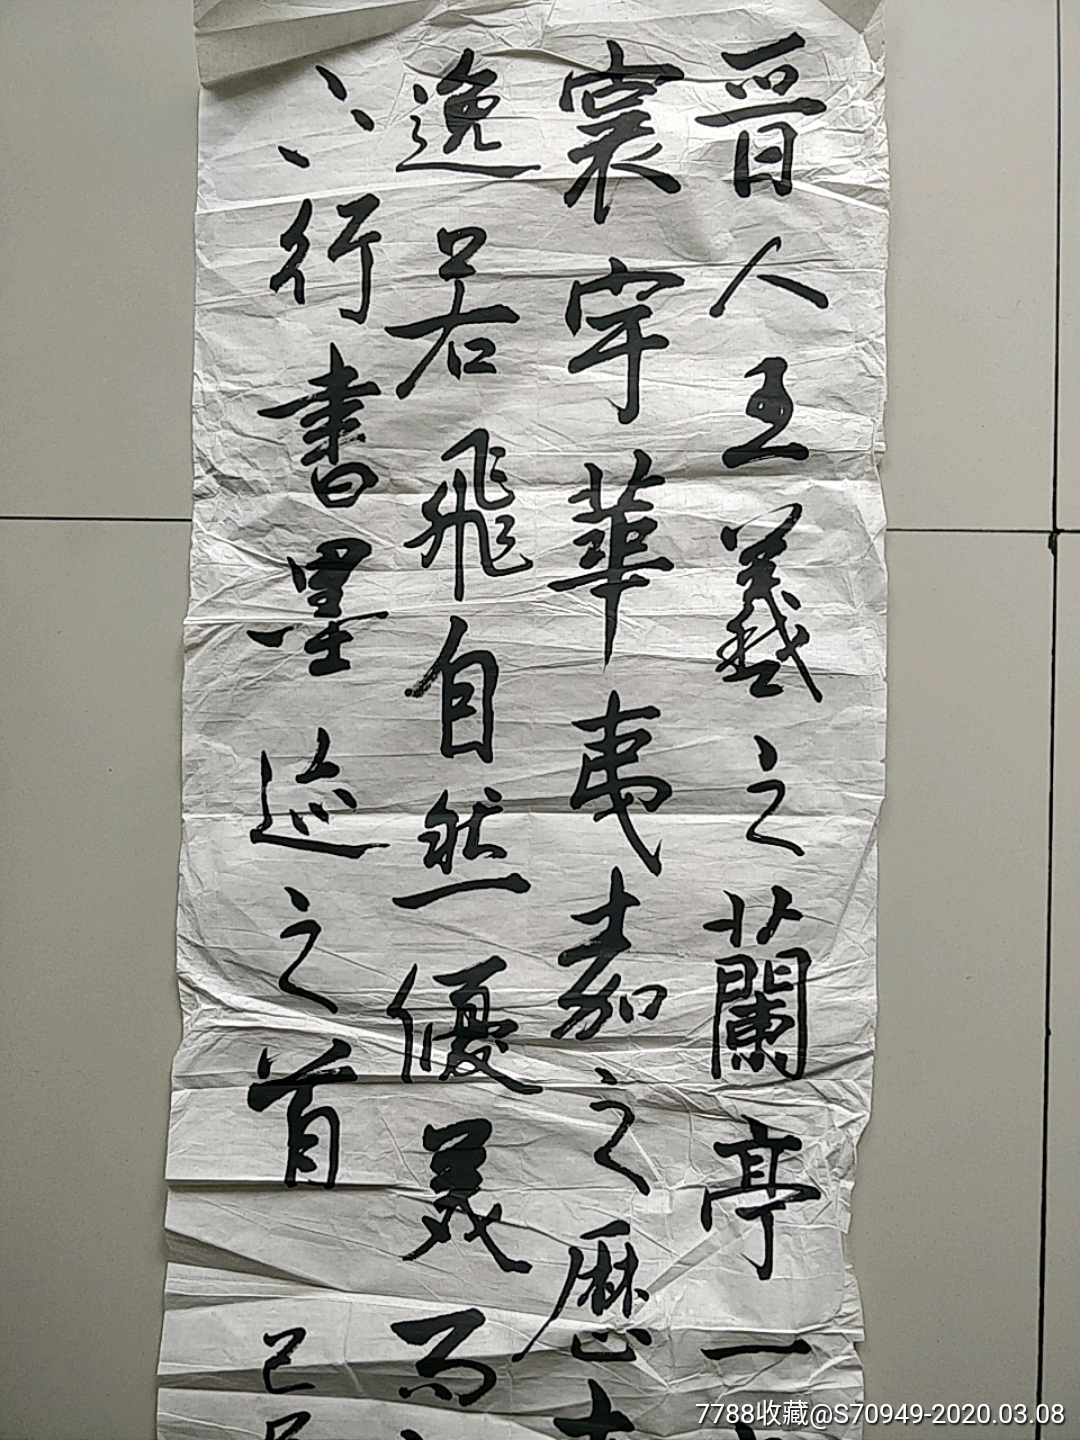 晋人王羲之蘭亭一
寰宇華夷嘉之歷
逸若飛自然優美为
行書墨迹之首己
7788收藏@S70949-2020.03.08